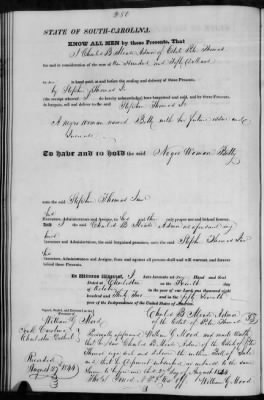 STATE OF SOUTH-CAROLINA.
KNOW ALL MEN by these Presents, That
I Charles B. Mood Admr of Estate Peter Thomas
for and in consideration of the sum of One Hundred and Fifty Dollars
in hand paid, at and before the sealing and delivery of these Presents,
by Stephen Thomas Jr
(the receipt whereof do hereby acknowledge) have bargained and sold, and by these Presents, do
bargain, sell and deliver to the said Stephen Thomas Jr
A negro Woman named Betty with her future issue and
Increase
To have and to hold the said Negro Woman Betty
unto the said Stephen Thomas Junr
his
Executors, Administrators and Assigns, to his and their only proper use and behoof forever.
And I the said Charles B. Mood Admr as aforesaid my
Executors and Administrators, the said bargained premises, unto the said Stephen Thomas Junr
his
Executors, Administrators and Assigns, from and against all persons shall and will warrant, and forever
defend by these Presents.
In Witness Whereof, I have hereunto set my Hand and Seal
Dated at Charleston on the Fourth day
of October in the year of our Lord one thousand eight
hundred and and in the fifty fourth
year of the Independence of the United States of America.
Signed, Sealed, and Delivered
Charles B. Mood Admr
William G. Mood of the Estate of Peter Thomas
South Carolina
Charleston District
Personally appeared William G. Mood and made Oath
that he saw Charles B. Mood Admr of the Estate of Peter
Thomas sign seal and deliver the within Bill of Sale
and that he Deponent subscribed as witness to the same
Sworn to before me this 27 of August 1844
Recorded
August 27 1844
William G. Mood